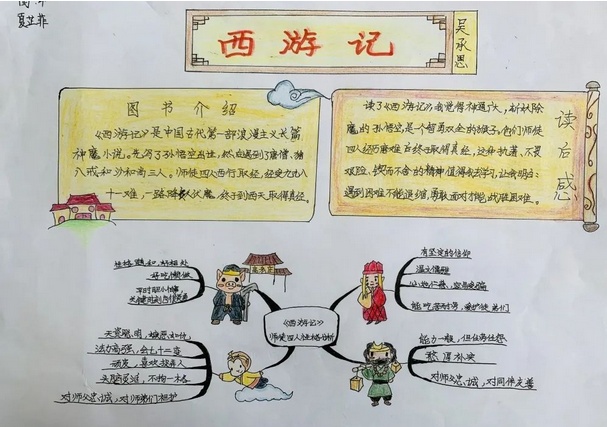 夏芷菲
西游记
吴承恩
图书介绍
《西游记》是中国古代第一部浪漫主义长篇
神魔小说。先写了孙悟空出世,然后遇到了唐僧、猪
八戒和沙和尚三人。师徒四人西行取经,经历九九八
十一难,一路降妖伏魔,终于到西天取得真经。
读后感
读了《西游记》我觉得神通广大,斩妖除
魔的孙悟空,是一个智勇双全的猴子。他们师徒
四人经历磨难后终于取得真经,这种执著、不畏
艰险、锲而不舍的精神值得我学习,让我明白:
遇到困难不能退缩,勇敢面对才能战胜困难。
性格温和,好相处
好吃懒做
高老庄
有坚定的信仰
温文儒雅
能吃苦耐劳,爱护徒弟们
《西游记》
师徒四人性格分析
天资聪明
法力高强,会七十二变
顽皮,喜欢捉弄人
头脑灵活,不拘一格
对师父忠诚,对师弟们相护
能力一般,但任劳任怨
憨厚朴实
对师父忠诚,对同伴友善